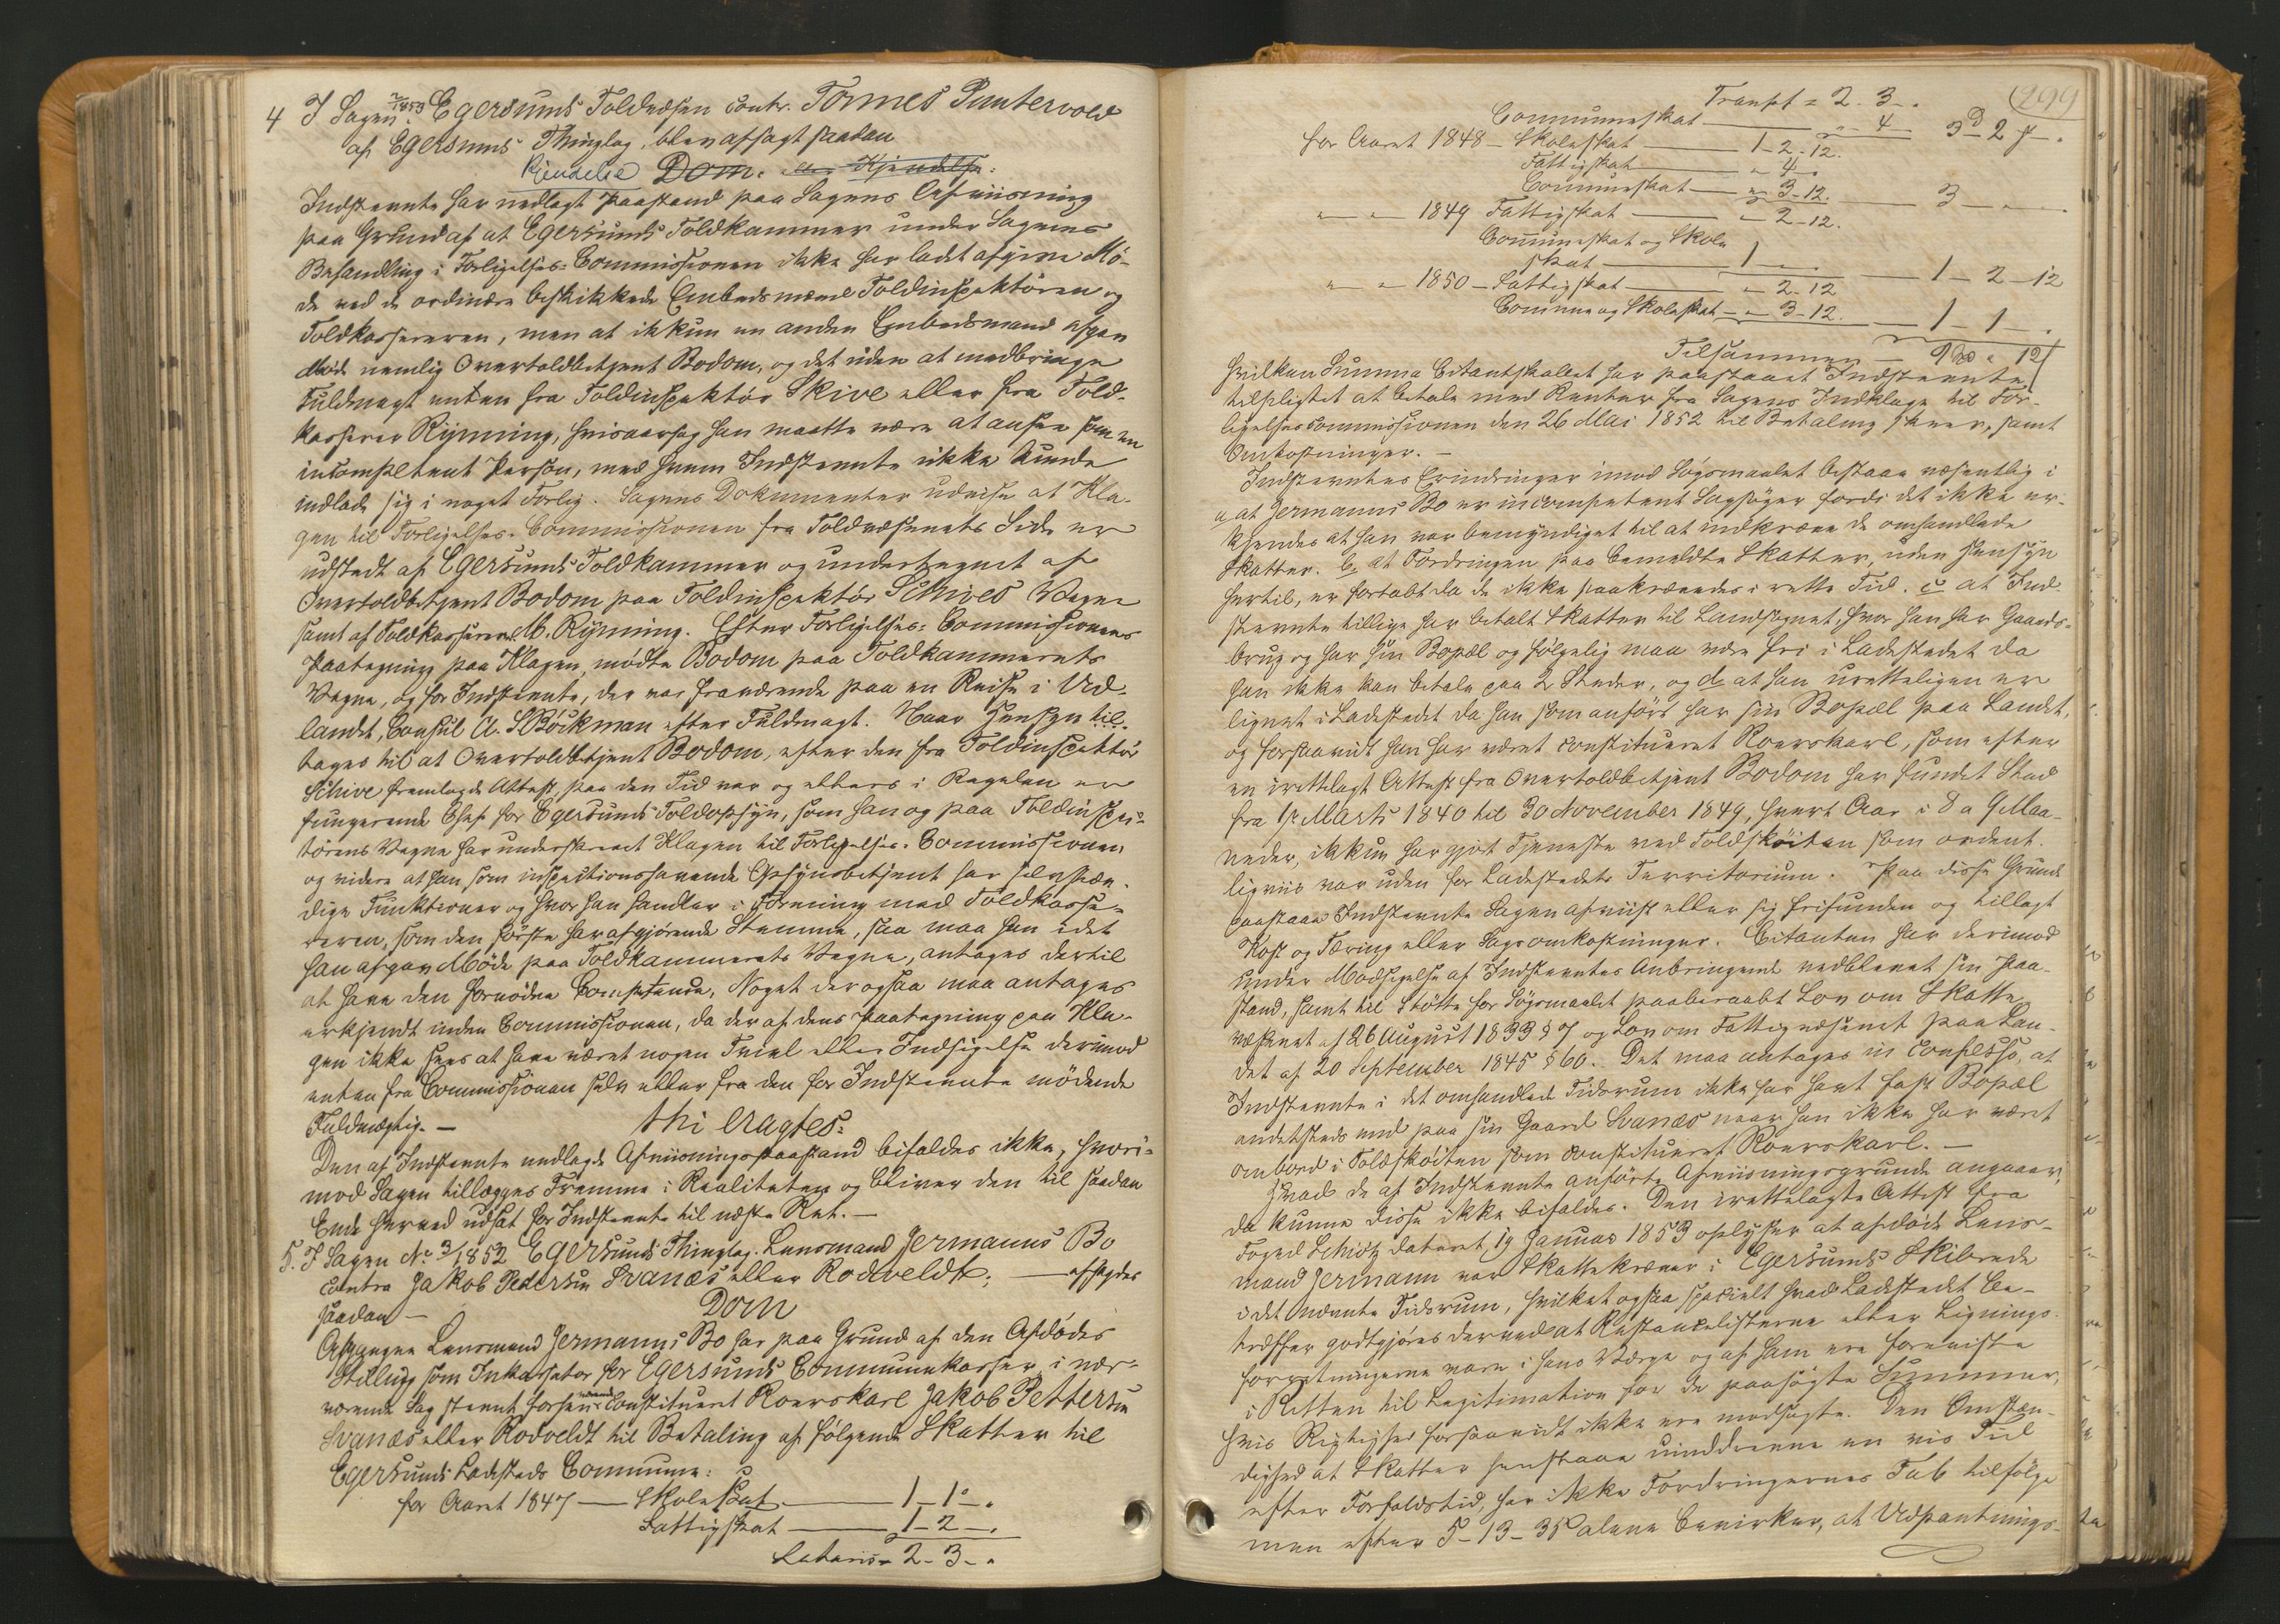 4 I Sagen 2/1853 Egersunds Toldvæsen contr. Tormes Puntervold
af Egersunds Thinglag, blev afsagt saadan
Kjendelse Dom: Kjendelse:
Indstevnte har nedlagt Paastand paa Sagens Afviisning
paa Grund af at Egersunds Toldkammer under Sagens
Behandling i Forligelses-Commissionen ikke har ladet afgive Mö-
de ved de ordinære beskikkede Embedsmænd Toldinspektören og
Toldkassereren, men at ikkun en anden Embedsmand afgav
Möde nemlig Overtoldbetjent Bodom, og det uden at medbringe
Fuldmagt enten fra Toldinspektör Skive eller fra Told-
kasserer Rynning, hvisaarsag han maatte være at ansee som en
incompetent Person, med hvem Indstevnte ikke kunde
indlade sig i noget Forlig. Sagens Dokumenter udvise at Kla-
gen til Forligelses-Commissionen fra Toldvæsenets Side er
udstedt af Egersunds Toldkammer og undertegnet af
Overtoldbetjent Bodom paa Toldinspektör Schives Vegne
samt af Toldkasserer M. Rynning. Efter Forligelses-Commissionens
Paategning paa Klagen mödte Bodom paa Toldkammerets
Vegne, og for Indstevnte, der var fraværende paa en Reise i Ud-
landet, Consul A. S. Böckman efter Fuldmagt. Naar Hensyn til-
tages til at Overtoldbetjent Bodom, efter den fra Toldinspektör
Schive fremlagde Attest, paa den Tid var og ellers i Regelen er
fungerende Chef for Egersunds Toldopsyn, som han og paa Toldinspec-
törens Vegne har underskrevet Klagen til Forligelses-Commissionen,
og videre at han som inspectionshavende Opsynsbetjent har selvstæn-
dige Funktioner og hvor han handler i Forening med Toldkasse-
reren, som den förste har afgjörende Stemme, saa maa han idet
han afgav Möde paa Toldkammerets Vegne, antages dertil
at have den fornödne Competence, Noget der ogsaa maa antages
erkjendt inden Commissionen, da der af dens Paategning paa Kla-
gen ikke sees at have været nogen Tvivl eller Indsigelse derimod
enten fra Commissionen selv eller fra den for Indstevnte mödende
Fuldmægtig. —
thi eragtes:
Den af Indstevnte nedlagde Afviisningspaastand bifaldes ikke, hvori-
mod Sagen tillægges Fremme i Realiteten og bliver den til saadan
Ende herved udsat for Indstevnte til næste Ret. —
5. I Sagen No 3/1852 Egersunds Thinglag. Lensmand Jermanns Bo
contra Jakob Pedersen Svanæs eller Rodveldt; — afsagdes
saadan — Dom
Afgangne Lensmand Jermanns Bo har paa Grund af den Afdödes
Stilling som Inkassator for Egersunds Communekasser i nær-
værende Sag stevnt forhenværende constitueret Roerskarl Jakob Pettersen
Svanæs eller Rodveldt til Betaling af fölgende Skatter til
Egersunds Ladesteds Commune:
for Aaret 1847 — Skoleskat — 1 - 1 - "
Fattigskat — 1 - 2 - "
Lateris = 2 - 3 - "
299
Transpt = 2 - 3 - "
Communeskat — " - 4 — 3d 2 # - "
for Aaret 1848 — Skoleskat — 1 - 2 - 12.
Fattigskat — " - 4 - "
Communeskat — " 3 - 12. — 3 - " - "
" — " — 1849 Fattigskat — " - 2 - 12.
Communeskat og Skole
skat — 1 - " — 1 - 2 - 12
" — " — 1850 — Fattigskat — " - 2 - 12
Commune og Skoleskat — " 3 - 12. — 1 - 1 - "
Tilsammen — 9 " 12
hvilken Summa Citantskabet har paastaaet Indstevnte
tilpligtet at betale med Renter fra Sagens Indklage til For-
ligelsescommissionen den 26 Mai 1852 til Betaling skeer, samt
Omkostninger. —
Indstevntes Erindringer imod Sögsmaalet bestaae væsentlig i
a, at Jermanns Bo er incompetent Sagsöger fordi det ikke er-
kjendes at han var bemyndiget til at indkræve de omhandlede
Skatter. b, at Fordringen paa bemeldte Skatter, uden Hensyn
hertil, er fortabt da de ikke paakrævedes i rette Tid. c, at Ind-
stevnte tillige har betalt Skatter til Landsognet, hvor han har Gaards-
brug og har sin Bopæl og fölgelig maa være fri i Ladestedet da
han ikke kan betale paa 2 Steder, og d, at han uretteligen er
lignet i Ladestedet da han som anfört har sin Bopæl paa Landet,
og forsaavidt han har været constitueret Roerskarl, som efter
en irettelagt Attest fra Overtoldbetjent Bodom har fundet Sted
fra 1ste Marts 1840 til 30 November 1849, hvert Aar i 8 a 9 Maa-
neder, ikkun har gjort Tjeneste ved Toldsköiten som ordent-
ligviis var uden for Ladestedets Territorium. Paa disse Grunde
paastaaer Indstevnte Sagen afviist eller sig frifunden og tillagt
Kost og Tæring eller Sagsomkostninger. Citanten har derimod
under Modsigelse af Indstevntes Anbringende vedblevet sin Paa-
stand, samt til Stötte for Sögsmaalet paaberaabt Lov om Skatte
væsenet af 26 August 1833 § 7 og Lov om Fattigvæsenet paa Lan-
det af 20 September 1845 § 60. Det maa antages in confesso, at
Indstevnte i det omhandlede Tidsrum ikke har havt fast Bopæl
andetsteds end paa sin Gaard Svanæs naar han ikke har været
ombord i Toldsköiten som constitueret Roerskarl. —
Hvad de af Indstevnte anförte Afviisningsgrunde angaaer,
da kunne disse ikke bifaldes. Den irettelagte Attest fra
Foged Schiötz dateret 19 Januar 1853 oplyser at afdöde Lens-
mand Jermann var Skattekræver i Egersunds Skibrede
i det nævnte Tidsrum, hvilket ogsaa specielt hvad Ladestedet be-
træffer godtgjöres derved at Restancelisterne eller Lignings-
forretningerne vare i hans Værge og af ham ere foreviste
i Retten til Legitimation for de paasögte Summer,
hvis Rigtighed forsaavidt ikke ere modsagte. Den Omstæn-
dighed at Skatter henstaae uinddrevne en vis Tid
efter Forfaldstid, har ikke Fordringernes Tab tilfölge
men efter 5-13-35 alene bevirker, at Udpantnings-